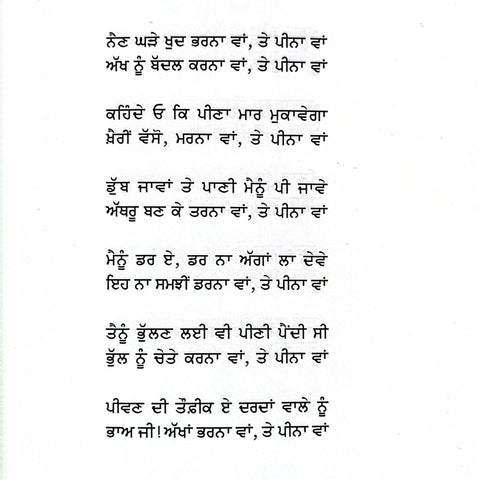 ਨੈਣ ਘੜੇ ਖ਼ੁਦ ਭਰਨਾ ਵਾਂ, ਤੇ ਪੀਨਾ ਵਾਂ
ਅੱਖ ਨੂੰ ਬੱਦਲ ਕਰਨਾ ਵਾਂ, ਤੇ ਪੀਨਾ ਵਾਂ
ਕਹਿੰਦੇ ਓ ਕਿ ਪੀਣਾ ਮਾਰ ਮੁਕਾਵੇਗਾ
ਖ਼ੈਰੀਂ ਵੱਸੋ, ਮਰਨਾ ਵਾਂ, ਤੇ ਪੀਨਾ ਵਾਂ
ਡੁੱਬ ਜਾਵਾਂ ਤੇ ਪਾਣੀ ਮੈਨੂੰ ਪੀ ਜਾਵੇ
ਅੱਥਰੂ ਬਣ ਕੇ ਤਰਨਾ ਵਾਂ, ਤੇ ਪੀਨਾ ਵਾਂ
ਮੈਨੂੰ ਡਰ ਏ, ਡਰ ਨਾ ਅੱਗਾਂ ਲਾ ਦੇਵੇ
ਇਹ ਨਾ ਸਮਝੀਂ ਡਰਨਾ ਵਾਂ, ਤੇ ਪੀਨਾ ਵਾਂ
ਤੈਨੂੰ ਭੁੱਲਣ ਲਈ ਵੀ ਪੀਣੀ ਪੈਂਦੀ ਸੀ
ਭੁੱਲ ਨੂੰ ਚੇਤੇ ਕਰਨਾ ਵਾਂ, ਤੇ ਪੀਨਾ ਵਾਂ
ਪੀਵਣ ਦੀ ਤੌਫ਼ੀਕ ਏ ਦਰਦਾਂ ਵਾਲੇ ਨੂੰ
ਭਾਅ ਜੀ! ਅੱਖਾਂ ਭਰਨਾ ਵਾਂ, ਤੇ ਪੀਨਾ ਵਾਂ